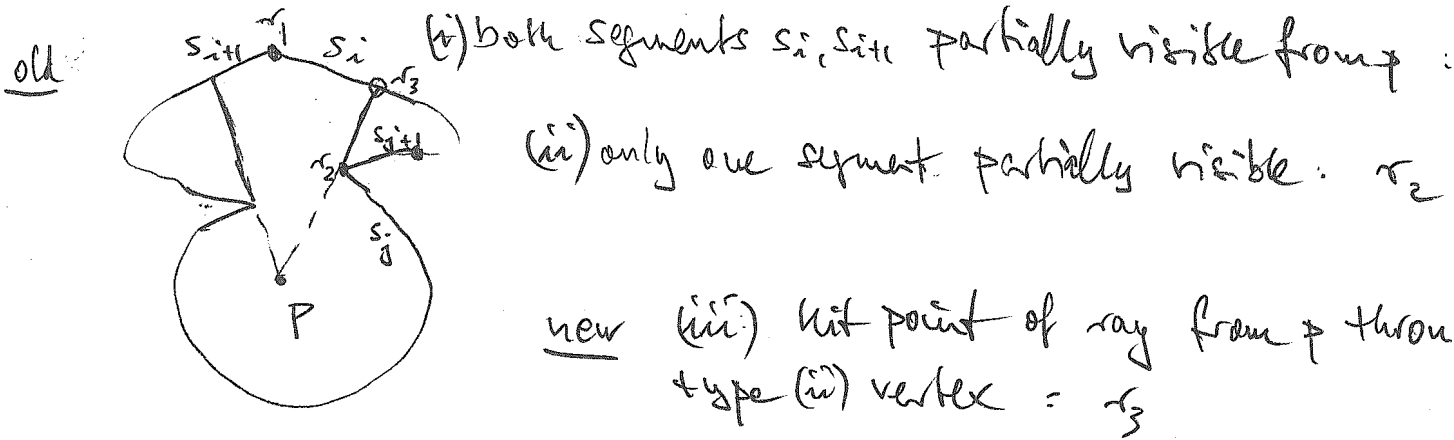 old
r₁
s_{i+1}
s_i
(i) both segments s_i, s_{i+1} partially visible from p :
r₃
s_{j+1}
r₂
(ii) only one segment partially visible : r₂
s_j
P
new (iii) hit point of ray from p throu
type (ii) vertex : r₃